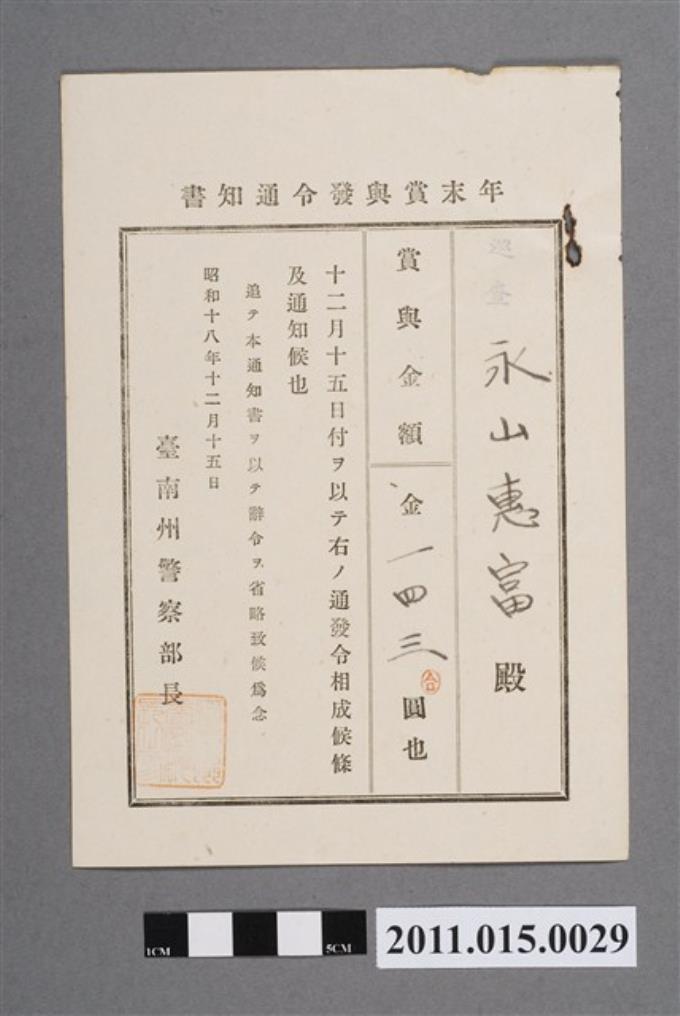 年末賞與發令通知書
巡查 永山惠富 殿
賞與金額 金一四三圓也
合
十二月十五日付ヲ以テ右ノ通發令相成候條
及通知候也
追テ本通知書ヲ以テ辭令ヲ省略致候爲念
昭和十八年十二月十五日
臺南州警察部長
1CM
5CM
2011.015.0029